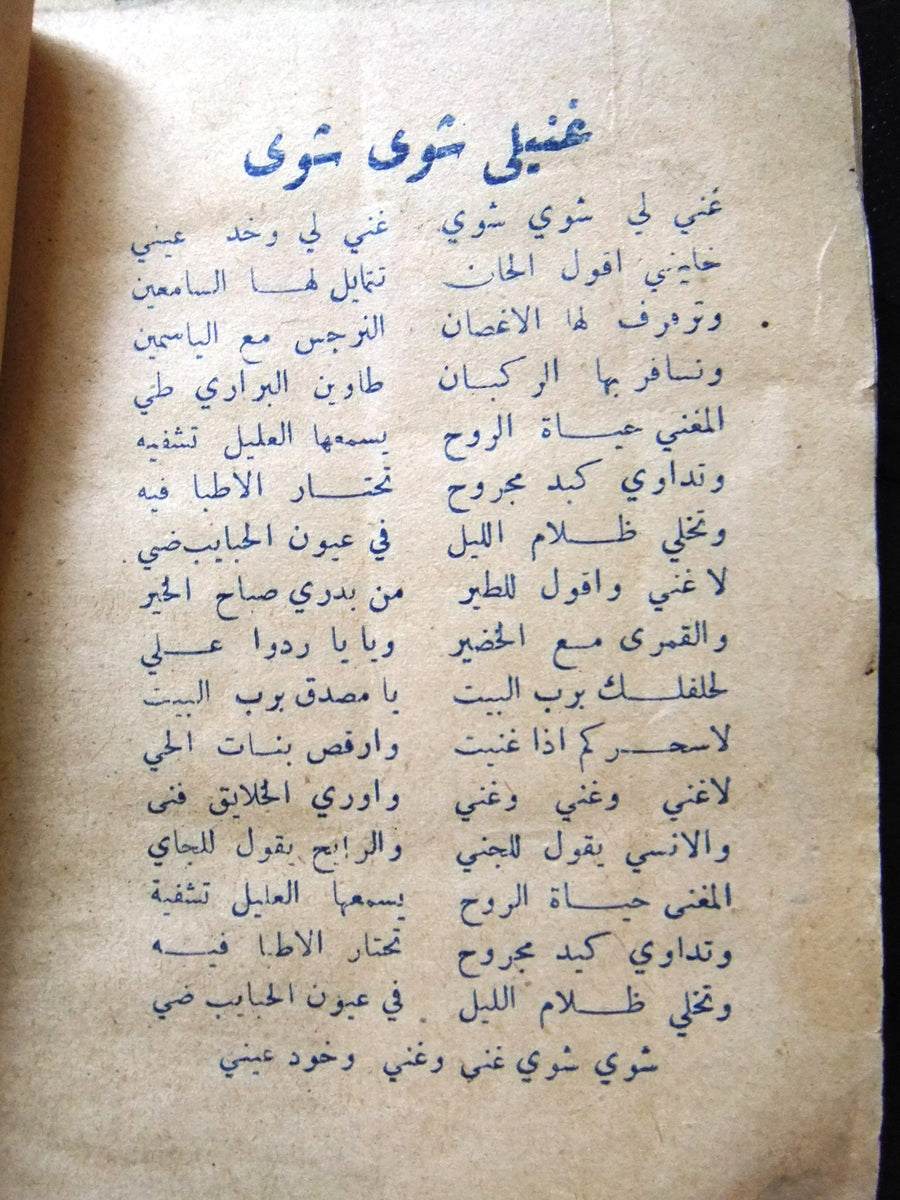 غنيلى شوى شوى
غني لي شوي شوي غني لي وخد عيني
خليني اقول الحان تتمايل لهــا السامعين
وترفرف لها الاغصان النرجس مع الياسمين
ونسافر بها الركبــان طاوين البراري طي
المغني حيــاة الروح يسمعها العليل تشفيه
وتداوي كبد مجروح تحتــار الاطبا فيه
وتخلي ظــلام الليل في عيون الحبايب ضي
لا غني واقول للطير من بدري صباح الخير
والقمرى مــع الخضير ويا يا ردوا عــلي
لحلفلــك برب البيت يا مصدق برب البيت
لاسحــركم اذا غنيت وارقص بنــات الحي
لاغني وغني وغني واوري الخلايق فنى
والانسي يقول للجني والرايح يقول للجاي
المغنى حيــاة الروح يسمعها العليل تشفية
وتداوي كيد مجروح تحتار الاطبا فيــه
وتخلي ظــلام الليل في عيون الحبايب ضي
شوي شوي غني وغني وخود عيني